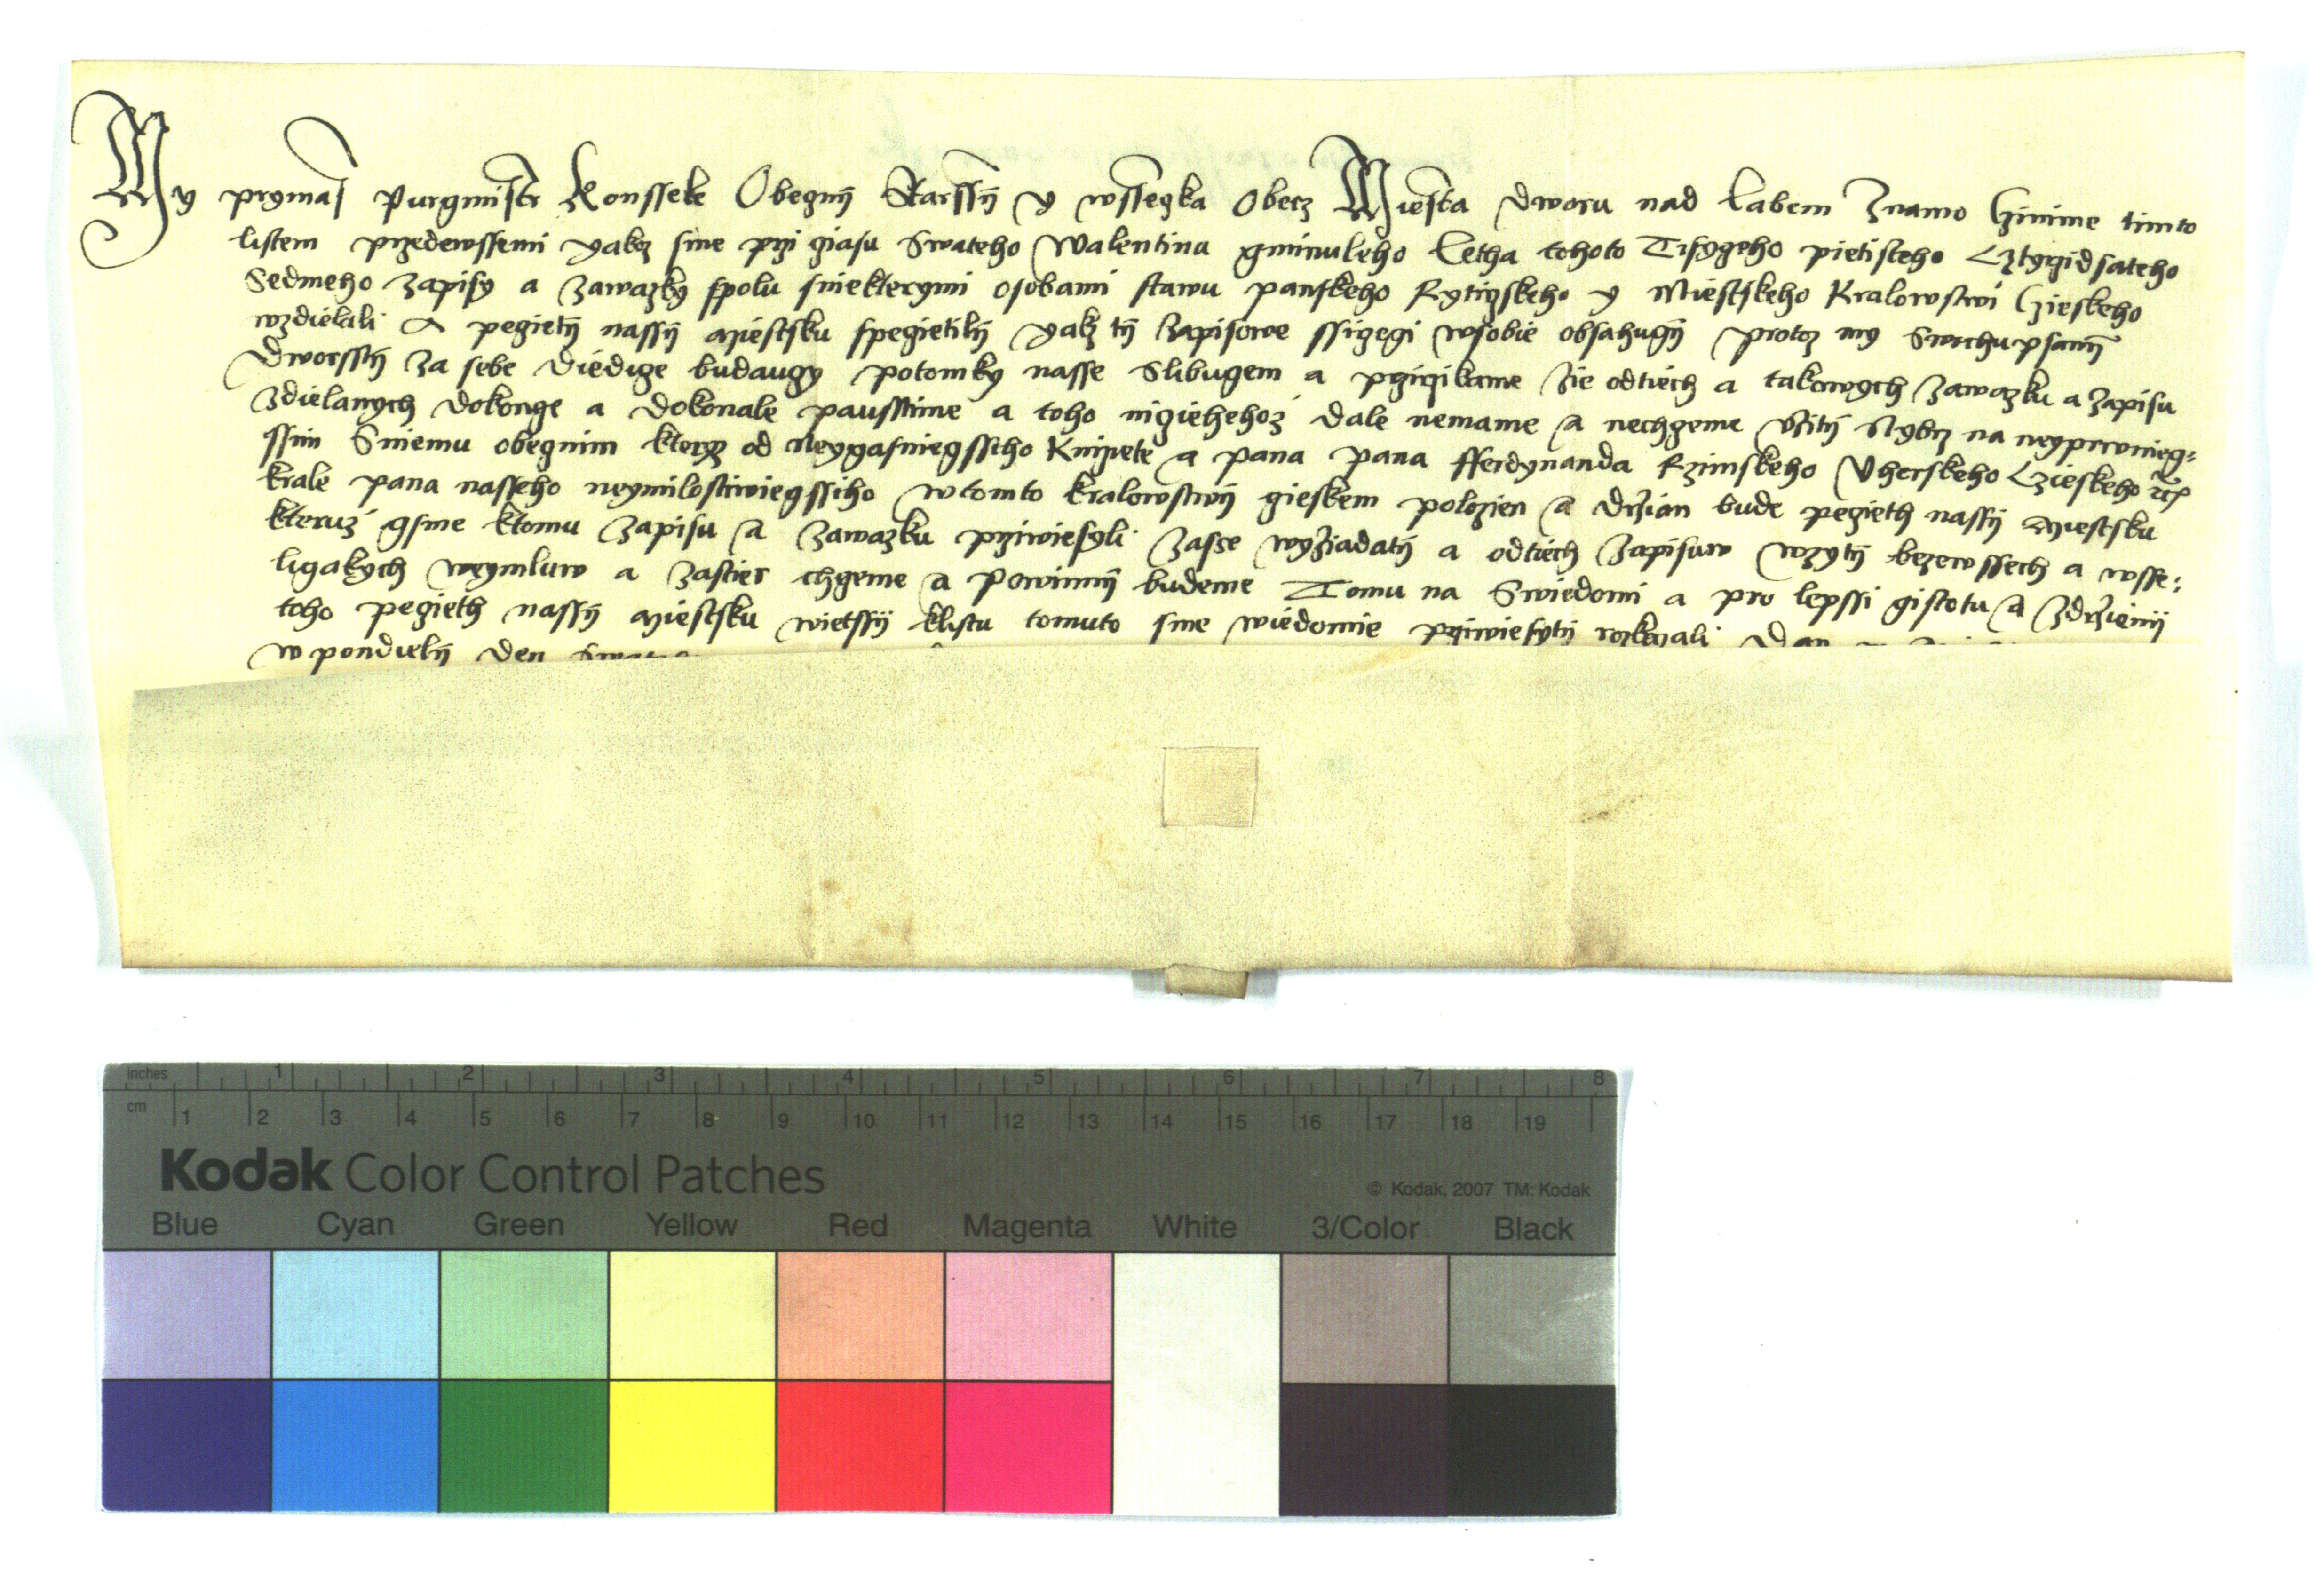 My prymas Purgmistr Konssele Obeczny Starssy y wssezka obecz Miesta dworu nad Labem Znamo Czinime timto
listem przedewssemi yakoz sme przi cziasu Swateho Walentina gminuleho Letha tohoto Tisyczeho pietisteho Cztyrzidsateho
Sedmeho zapisy a zawazky spolu sniekterymi osobami stawu panskeho Rytirzskeho y Miestskeho Kralowstwi Czieskeho
wzdielali A peczietij nassij miestsku speczietily yakz tij zapisowe ssirzegi wsobie obsahugij protoz my Swrchupsanij
Dworsstij za sebe diedicze budauczy potomky nasse Slibugem a przirzikame zie odtiech a takowych zawazku a zapisu
zdielanych dokoncze a dokonale pausstime a toho niczehehoz dale nemame a nechczeme uzitij Nybrz na neyprwnieg=
ssim Sniemu obecznim kteryz od Neygasniegssiho Knizete a pana pana fferdynanda Rzimskeho Uherskeho Czieskeho etc
krale pana nasseho neymilostiwiegssiho wtomto kralowstwij czieskem polozien a drzian bude pecziet nassij Miestsku
kteruz gsme ktomu zapisu a zawazku prziwiesyli zasse wyziadatij a odtiech zapisuw wzytij bezewssech a wsse=
ligakych weymluw a zastier chczeme a powinnij budeme Tomu na Swiedomi a pro lepssi gistotu a zdrzienij
toho peczieth nassij miestsku wietssij klistu tomuto sme wiedomie prziwiesytij rozkazali Dan
w pondielij den
inches 1 2 3 4 5 6 7 8
cm 1 2 3 4 5 6 7 8 9 10 11 12 13 14 15 16 17 18 19
Kodak Color Control Patches
© Kodak, 2007 TM: Kodak
Blue Cyan Green Yellow Red Magenta White 3/Color Black